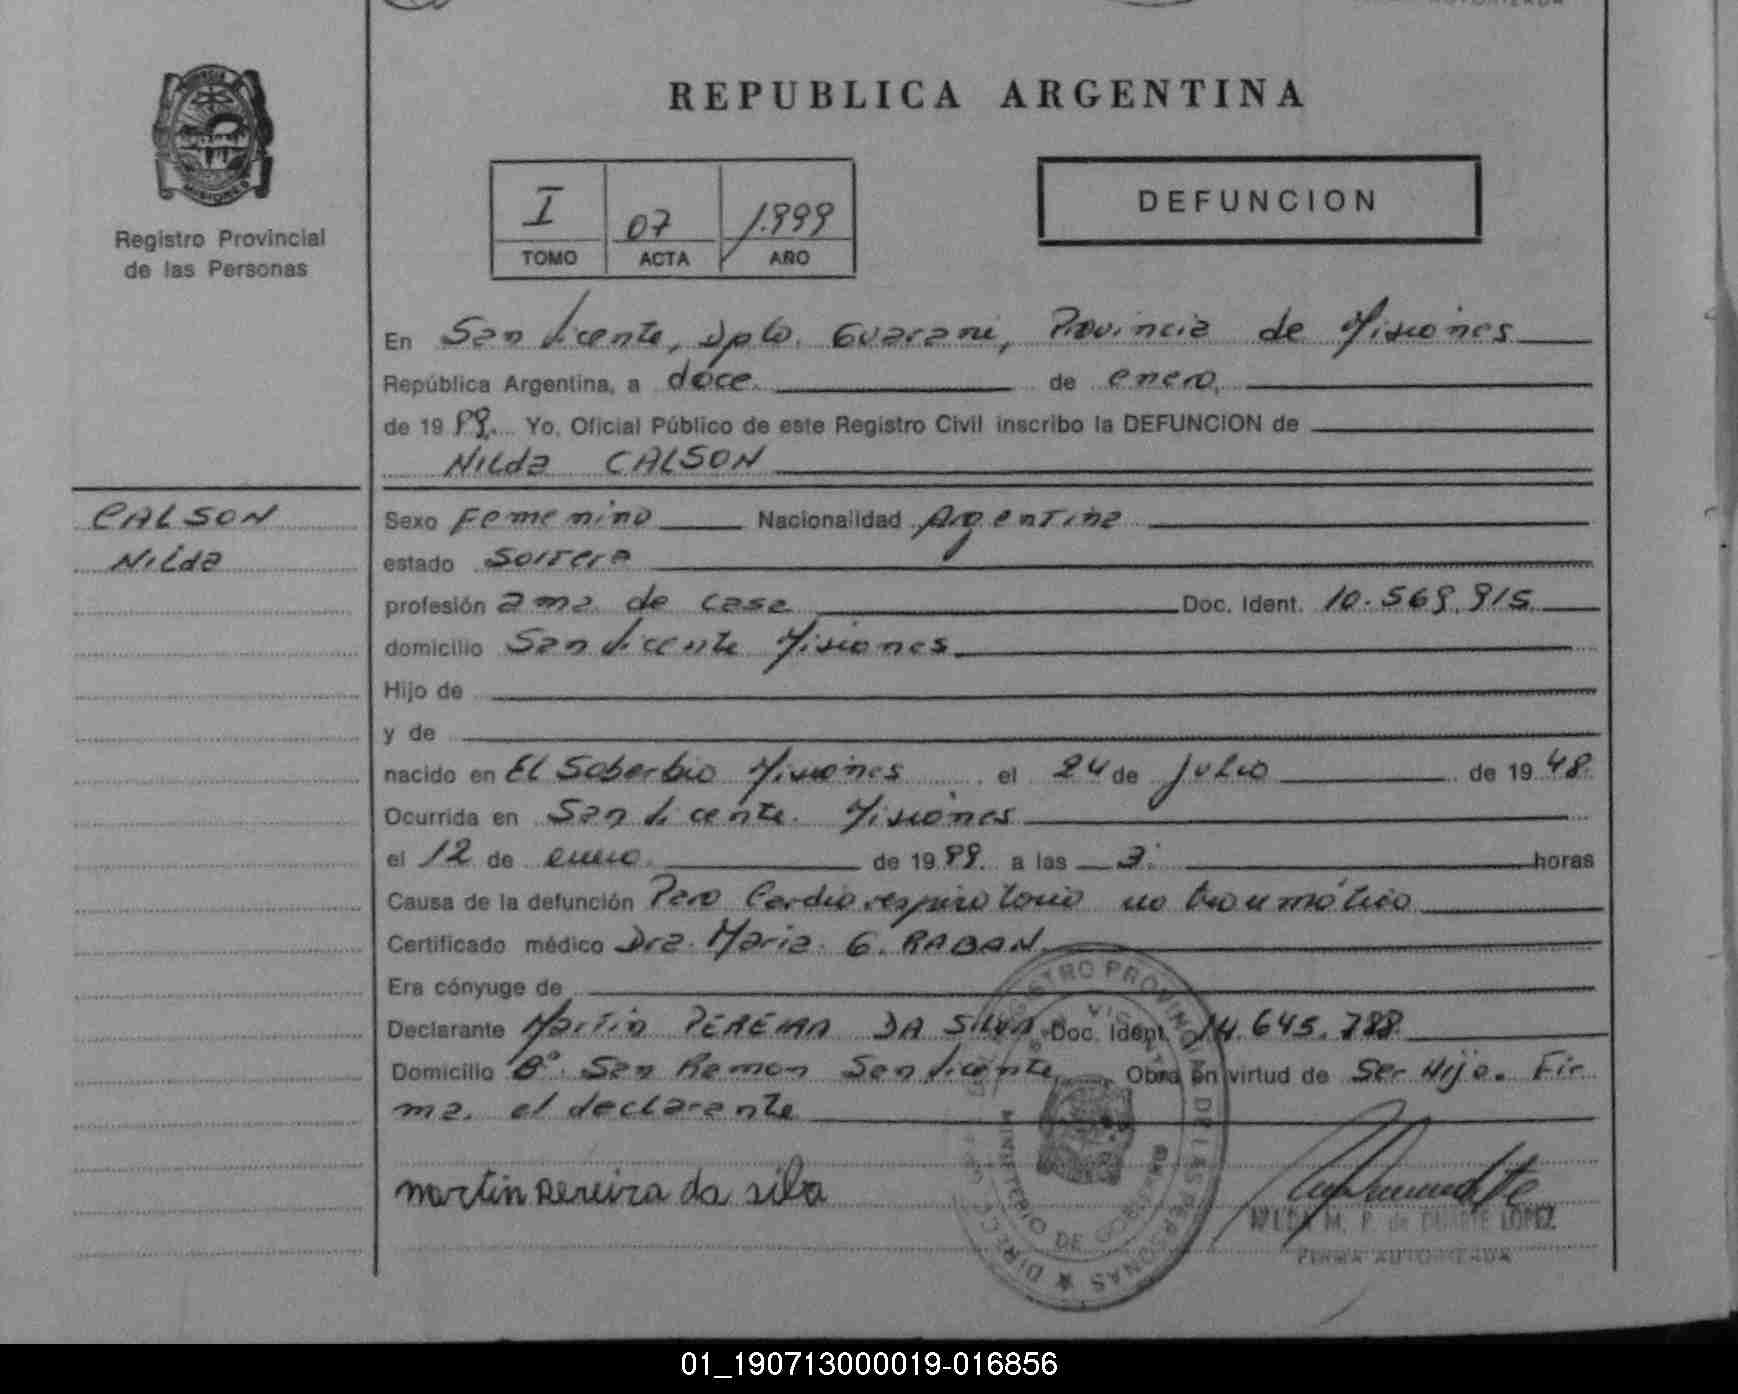 REPUBLICA ARGENTINA
MISIONES
Registro Provincial
de las Personas
I 07 1.999
TOMO ACTA AÑO
DEFUNCION
En San Vicente, Dpto. Guarani, Provincia de Misiones
República Argentina, a doce. de enero,
de 1999. Yo, Oficial Público de este Registro Civil inscribo la DEFUNCION de
Nilda CALSON
CALSON
Nilda
Sexo Femenino Nacionalidad Argentina
estado Soltera
profesión ama de casa Doc. Ident. 10.569.915
domicilio San Vicente Misiones
Hijo de
y de
nacido en El Soberbio Misiones el 24 de Julio de 1948.
Ocurrida en San Vicente. Misiones
el 12 de enero. de 1999. a las 3: horas
Causa de la defunción Paro Cardio respiratorio no traumático
Certificado médico Dra. Maria G. RABAN
Era cónyuge de
Declarante Martin PEREIRA DA SILVA Doc. Ident. 14.645.788
Domicilio Bº. San Ramon San Vicente Obra en virtud de Ser Hijo. Fir
ma. el declarante
martin pereira da silva
REGISTRO PROVINCIAL DE LAS PERSONAS
MINISTERIO DE GOBIERNO
NILDA M. P. de DUARTE LOPEZ
FIRMA AUTORIZADA
01_190713000019-016856